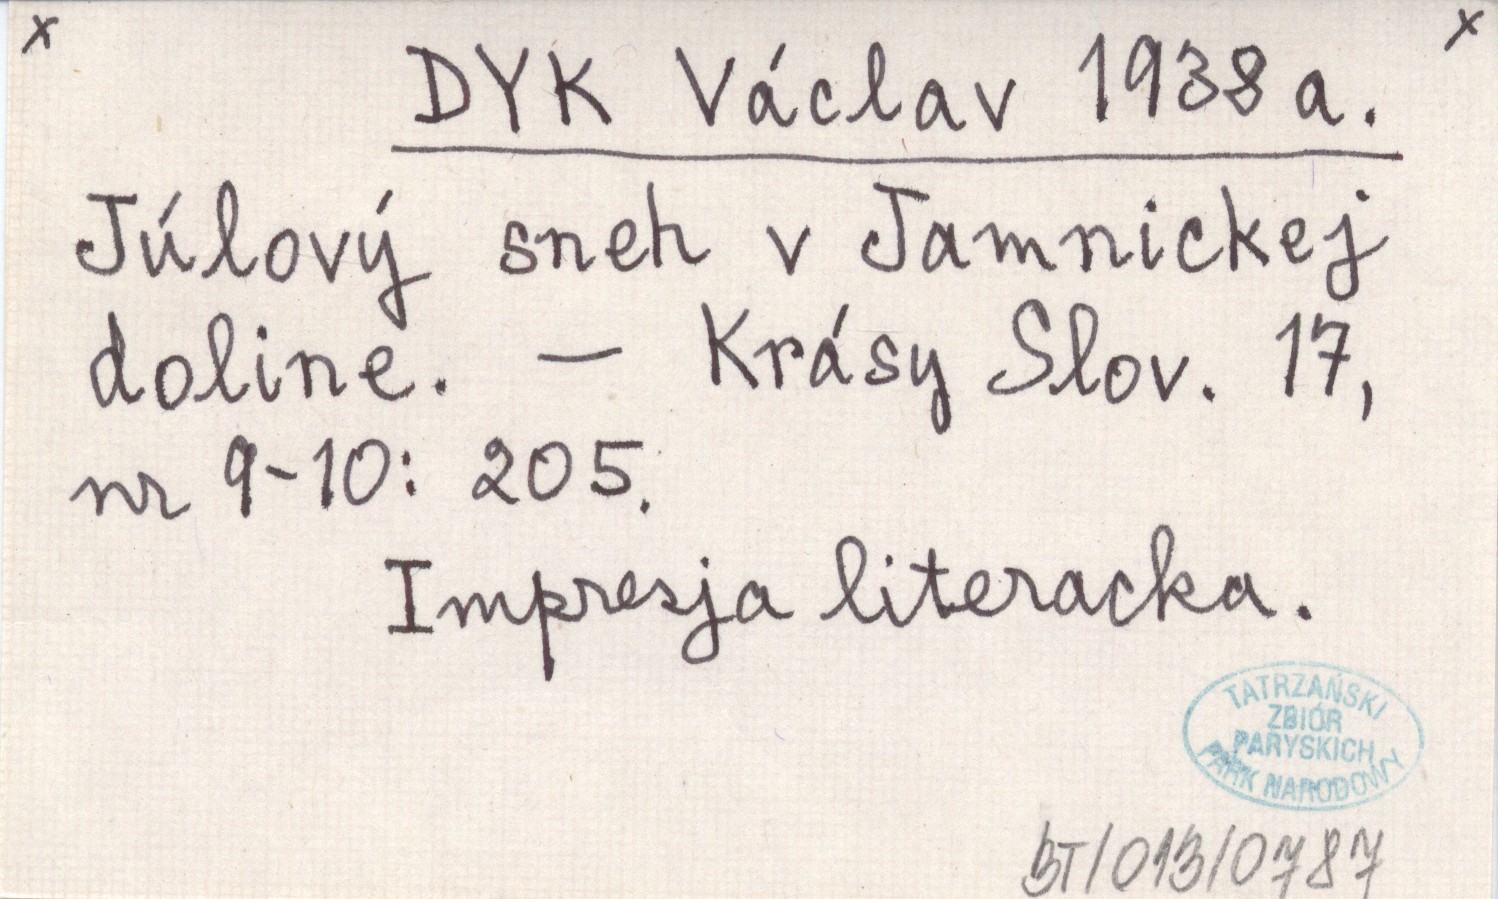 x x
DYK Václav 1938 a.
Júlový sneh v Jamnickej
doline. — Krásy Slov. 17,
nr 9-10: 205.
Impresja literacka.
TATRZAŃSKI
ZBIÓR
PARYSKICH
PARK NARODOWY
BT/013/0787